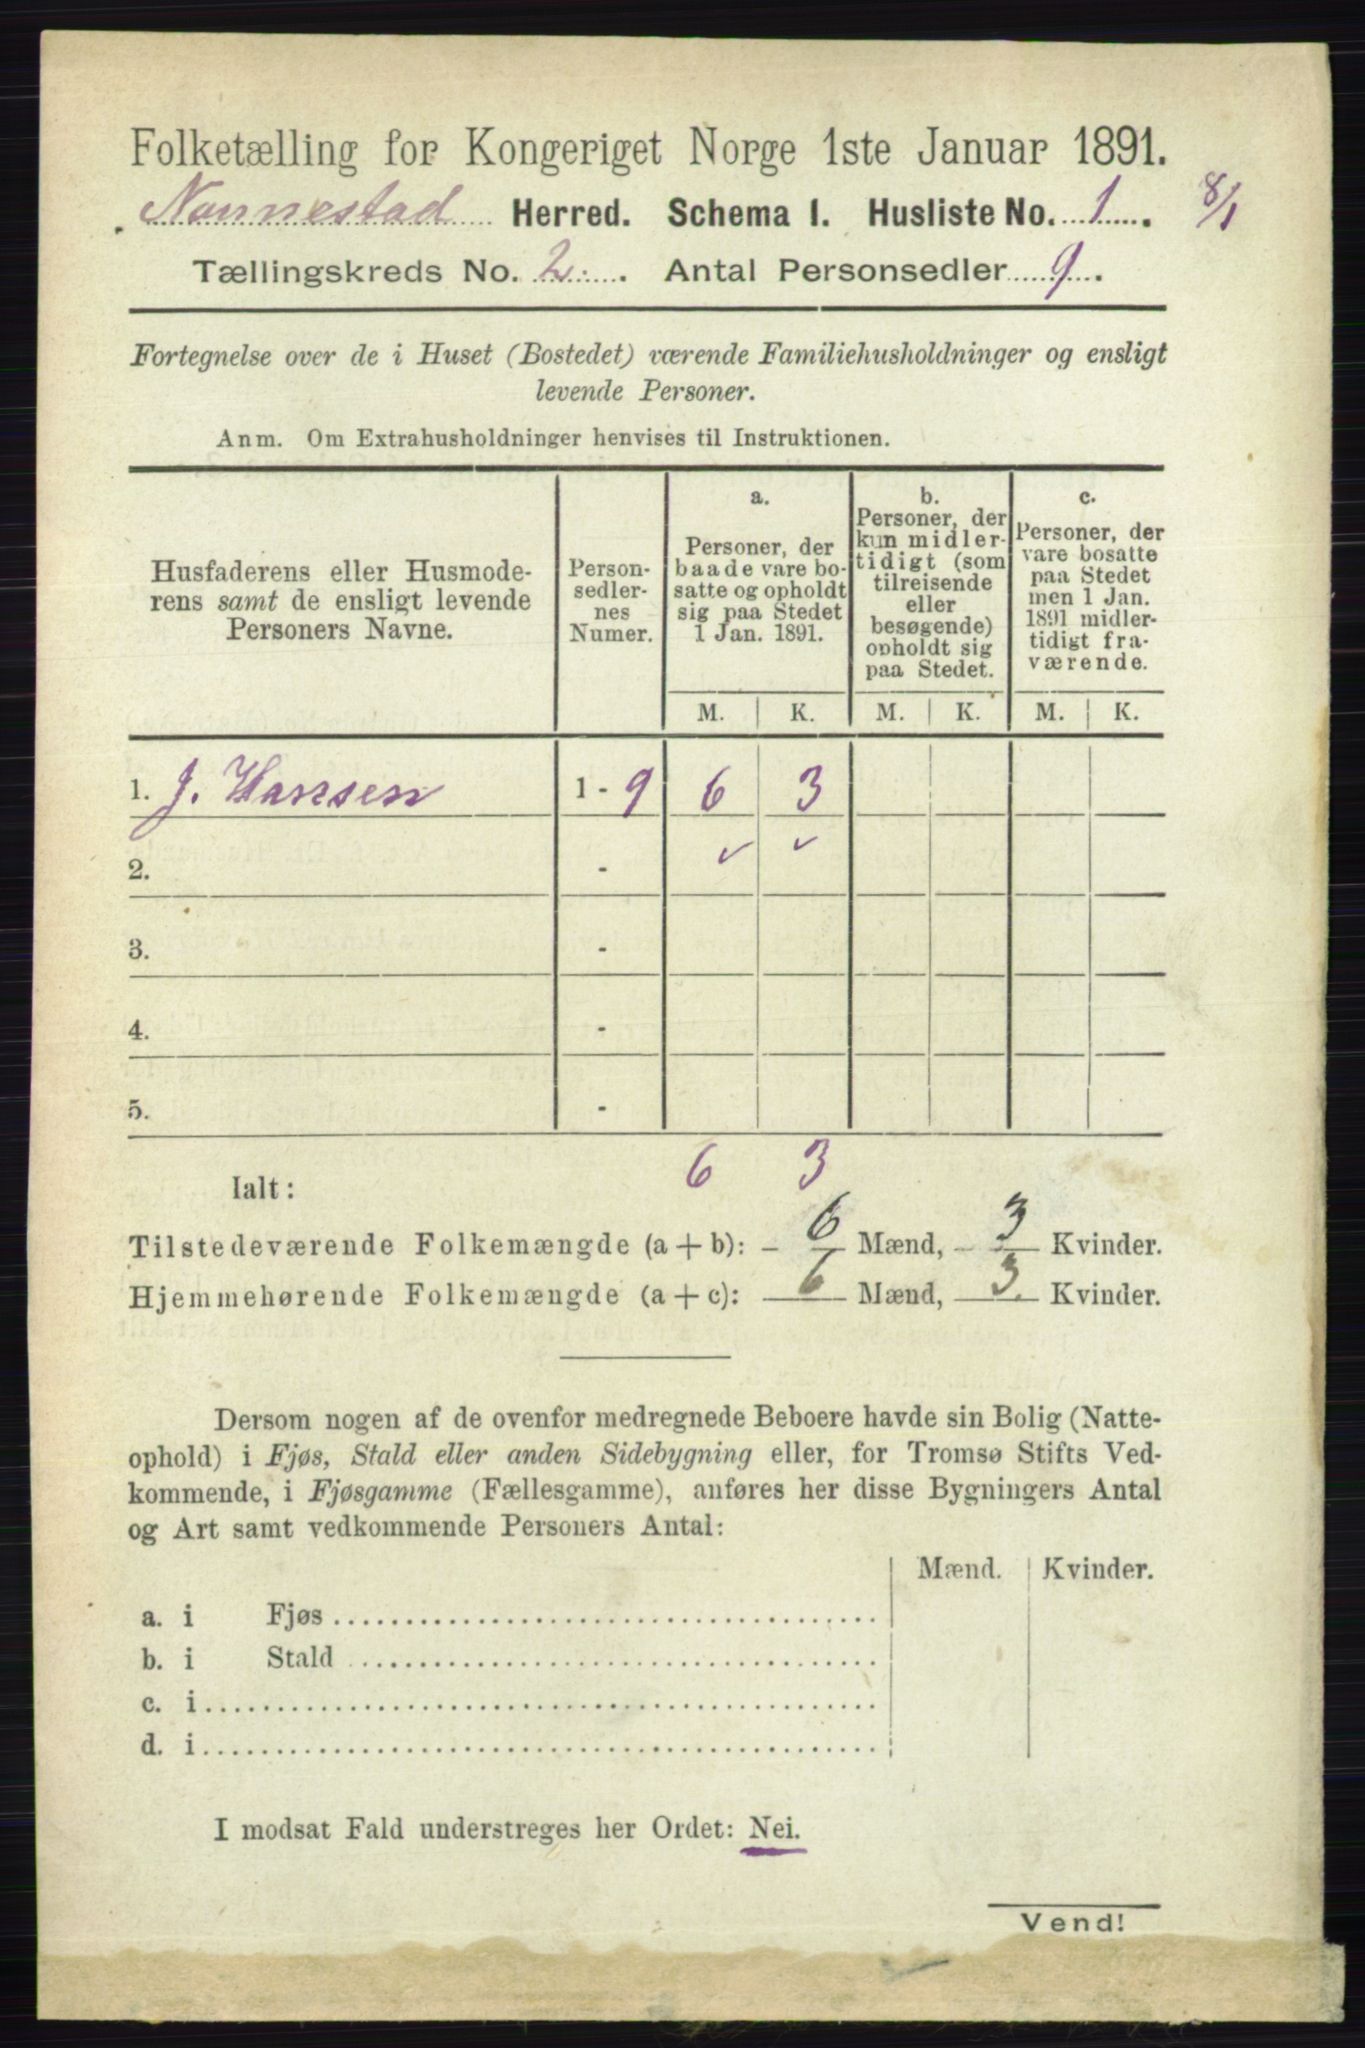 Folketælling for Kongeriget Norge 1ste Januar 1891.
Nannestad Herred. Schema I. Husliste No. 1. 8/1
Tællingskreds No. 2. Antal Personsedler 9.
Fortegnelse over de i Huset (Bostedet) værende Familiehusholdninger og ensligt
levende Personer.
Anm. Om Extrahusholdninger henvises til Instruktionen.
Husfaderens eller Husmode-
rens samt de ensligt levende
Personers Navne.
Person-
sedler-
nes
Numer.
a.
Personer, der
baade vare bo-
satte og opholdt
sig paa Stedet
1 Jan. 1891.
b.
Personer, der
kun midler-
tidigt (som
tilreisende
eller
besøgende)
opholdt sig
paa Stedet.
c.
Personer, der
vare bosatte
paa Stedet
men 1 Jan.
1891 midler-
tidigt fra-
værende.
M. K. M. K. M. K.
1. J. Hansen 1 - 9 6 3
✓ ✓
2. -
3. -
4. -
5. -
Ialt: 6 3
Tilstedeværende Folkemængde (a + b): - 6 Mænd, - 3 Kvinder.
Hjemmehørende Folkemængde (a + c): 6 Mænd, 3. Kvinder.
Dersom nogen af de ovenfor medregnede Beboere havde sin Bolig (Natte-
ophold) i Fjøs, Stald eller anden Sidebygning eller, for Tromsø Stifts Ved-
kommende, i Fjøsgamme (Fællesgamme), anføres her disse Bygningers Antal
og Art samt vedkommende Personers Antal:
Mænd. Kvinder.
a. i Fjøs
b. i Stald
c. i
d. i
I modsat Fald understreges her Ordet: Nei.
Vend!